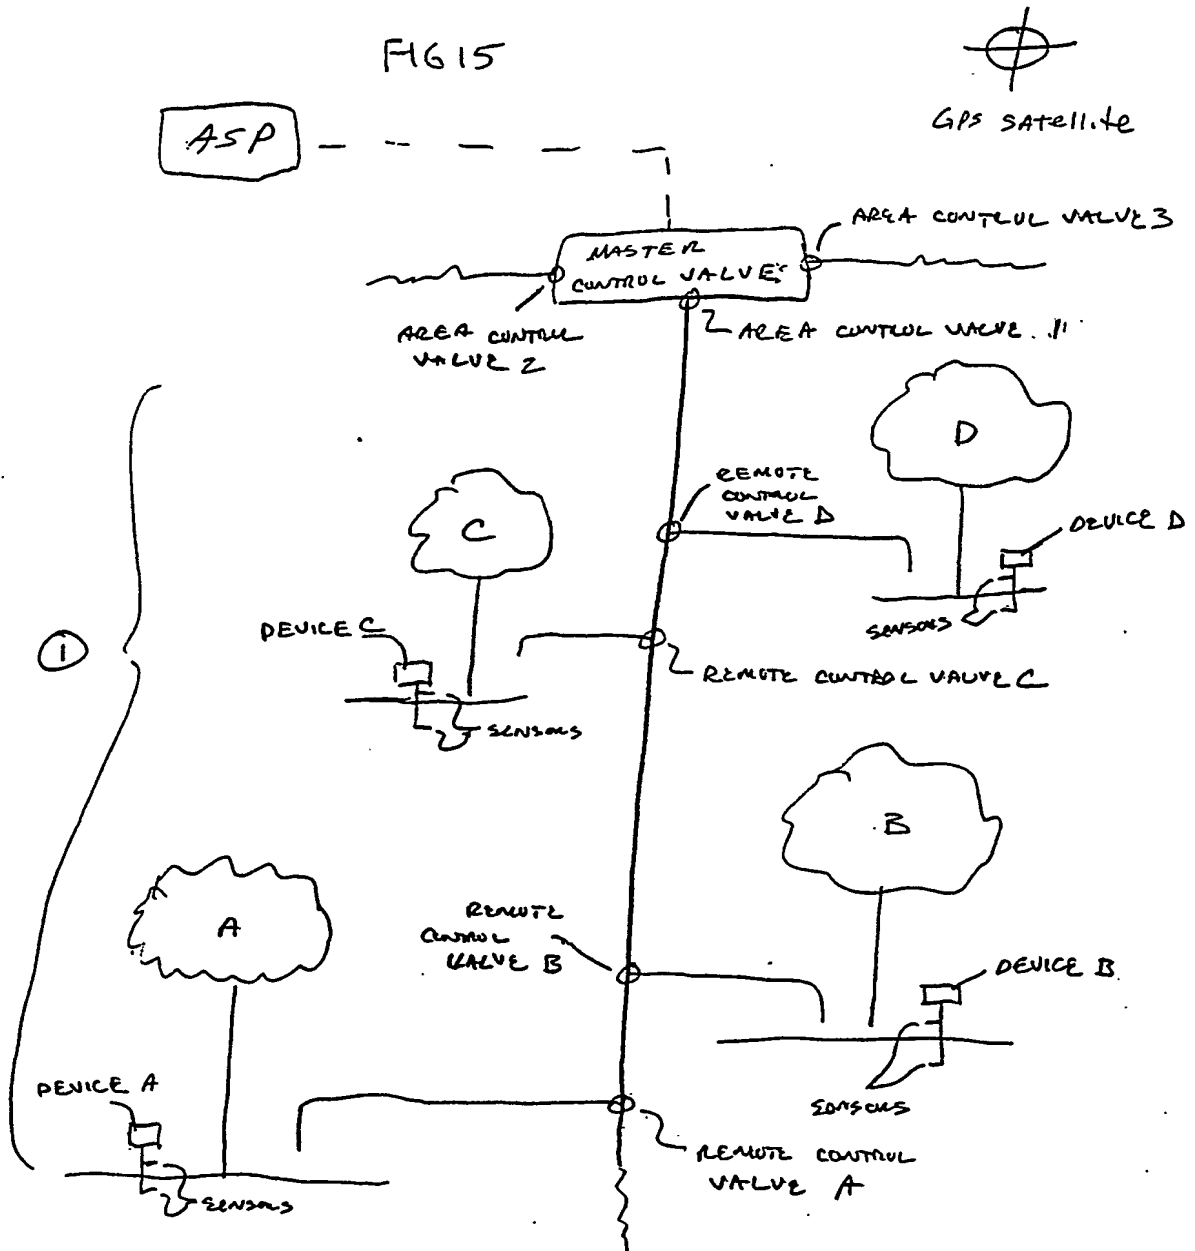 FIG 15
GPS SATellite
ASP
AREA CONTROL VALVE 3
MASTER
CONTROL VALVE
AREA CONTROL
VALVE 2
AREA CONTROL VALVE 1
D
REMOTE
CONTROL
VALVE D
C
DEVICE D
SENSORS
DEVICE C
1
REMOTE CONTROL VALVE C
SENSORS
B
A
REMOTE
CONTROL
VALVE B
DEVICE B
DEVICE A
SENSORS
REMOTE CONTROL
VALVE A
SENSORS